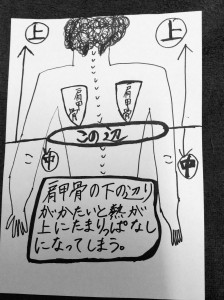 上
上
肩甲骨
肩甲骨
この辺
中
中
肩甲骨の下の辺り
がかたいと熱が
上にたまりっぱなし
になってしまう。